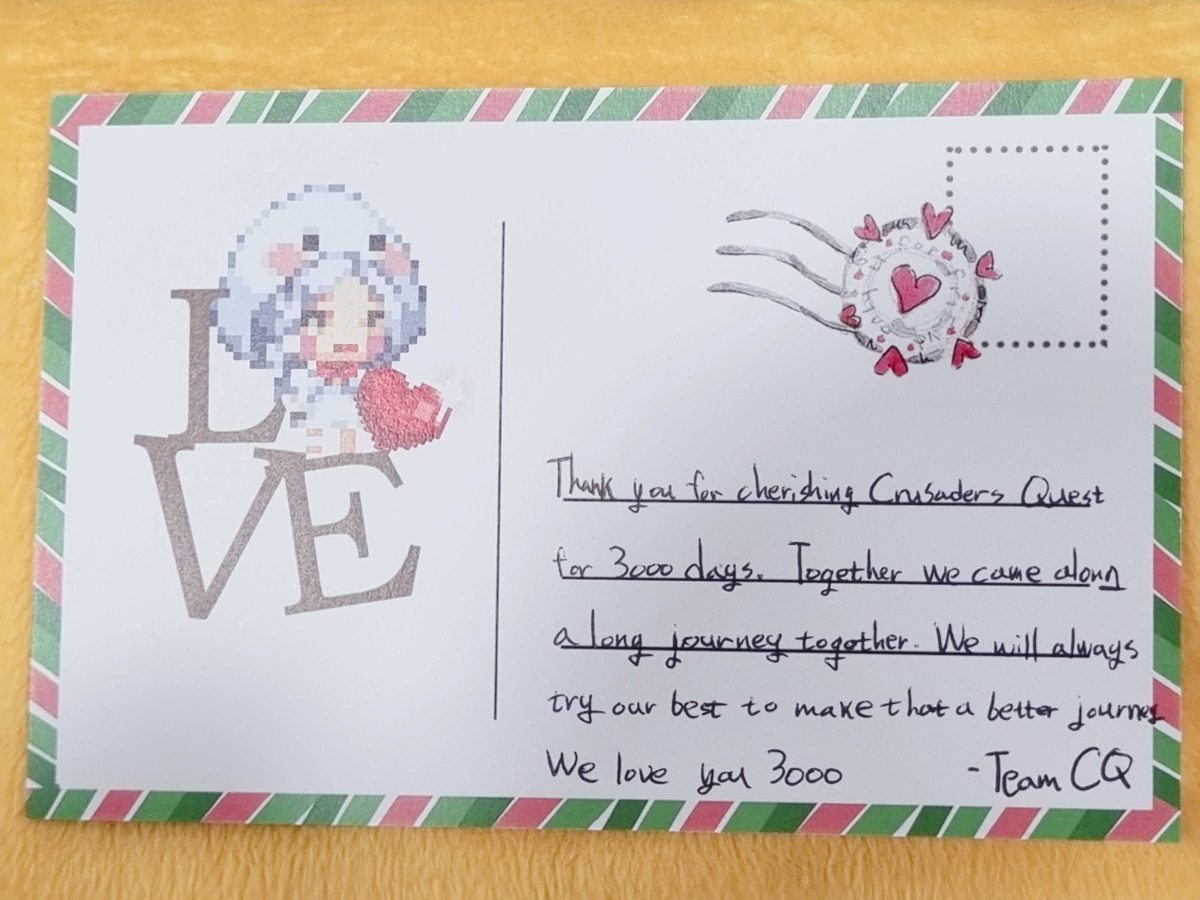 L
VE
Thank you for cherishing Crusaders Quest
for 3000 days. Together we came along
a long journey together. We will always
try our best to make that a better journey
We love you 3000 -Team CQ